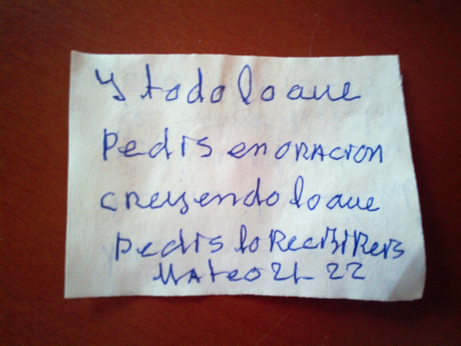 y todo lo que
Pedis en ORACION
creyendo lo que
pedis lo Recibireis
Mateo 21-22